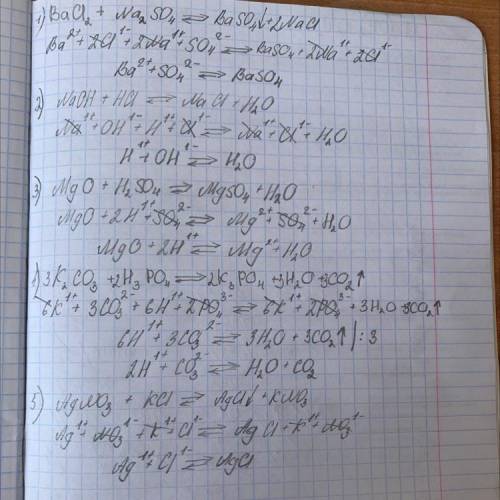 1) BaCl₂ + Na₂SO₄ ⇌ BaSO₄↓ + 2NaCl
Ba²⁺ + 2Cl¹⁻ + 2Na¹⁺ + SO₄²⁻ ⇌ BaSO₄ + 2Na¹⁺ + 2Cl¹⁻
Ba²⁺ + SO₄²⁻ ⇌ BaSO₄
2) NaOH + HCl ⇌ NaCl + H₂O
Na¹⁺ + OH¹⁻ + H¹⁺ + Cl¹⁻ ⇌ Na¹⁺ + Cl¹⁻ + H₂O
H¹⁺ + OH¹⁻ ⇌ H₂O
3) MgO + H₂SO₄ ⇌ MgSO₄ + H₂O
MgO + 2H¹⁺ + SO₄²⁻ ⇌ Mg²⁺ + SO₄²⁻ + H₂O
MgO + 2H¹⁺ ⇌ Mg²⁺ + H₂O
1) 3K₂CO₃ + 2H₃PO₄ ⇌ 2K₃PO₄ + 3H₂O + 3CO₂↑
6K¹⁺ + 3CO₃²⁻ + 6H¹⁺ + 2PO₄³⁻ ⇌ 6K¹⁺ + 2PO₄³⁻ + 3H₂O + 3CO₂↑
6H¹⁺ + 3CO₃²⁻ ⇌ 3H₂O + 3CO₂↑ | : 3
2H¹⁺ + CO₃²⁻ ⇌ H₂O + CO₂
5) AgNO₃ + KCl ⇌ AgCl↓ + KNO₃
Ag¹⁺ + NO₃¹⁻ + K¹⁺ + Cl¹⁻ ⇌ AgCl + K¹⁺ + NO₃¹⁻
Ag¹⁺ + Cl¹⁻ ⇌ AgCl